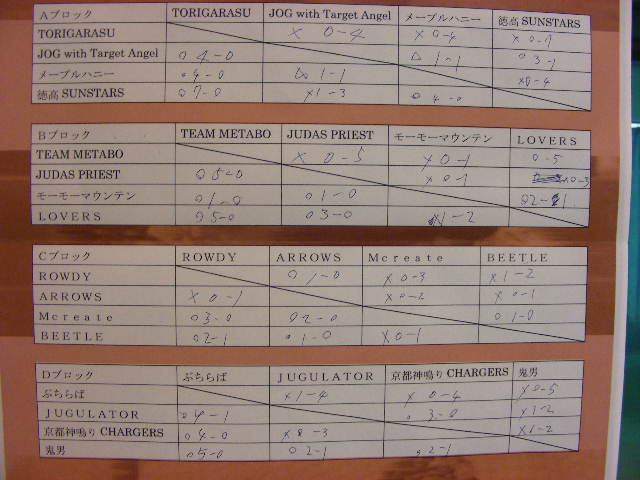 Aブロック TORIGARASU JOG with Target Angel メープルハニー 徳高 SUNSTARS
TORIGARASU × 0-4 × 0-4 × 0-7
JOG with Target Angel ○ 4-0 △ 1-1 ○ 3-1
メープルハニー ○ 4-0 △ 1-1 ×0-4
徳高 SUNSTARS ○ 7-0 ×1-3 ○ 4-0
Bブロック TEAM METABO JUDAS PRIEST モーモーマウンテン LOVERS
TEAM METABO × 0-5 × 0-1 0-5
JUDAS PRIEST ○ 5-0 ×0-1 ×0-3
モーモーマウンテン ○1-0 ○1-0 ○2-1
LOVERS ○5-0 ○3-0 ×1-2
Cブロック ROWDY ARROWS Mcreate BEETLE
ROWDY ○ 1-0 ×0-3 ×1-2
ARROWS × 0-1 ×0-2 × 0-1
Mcreate ○3-0 ○2-0 ○1-0
BEETLE ○2-1 ○1-0 ×0-1
Dブロック ぷちらば JUGULATOR 京都神鳴り CHARGERS 鬼男
ぷちらば ×1-4 × 0-4 ×0-5
JUGULATOR ○4-1 ○3-0 ×1-2
京都神鳴り CHARGERS ○4-0 ×0-3 ×1-2
鬼男 ○5-0 ○2-1 ○2-1